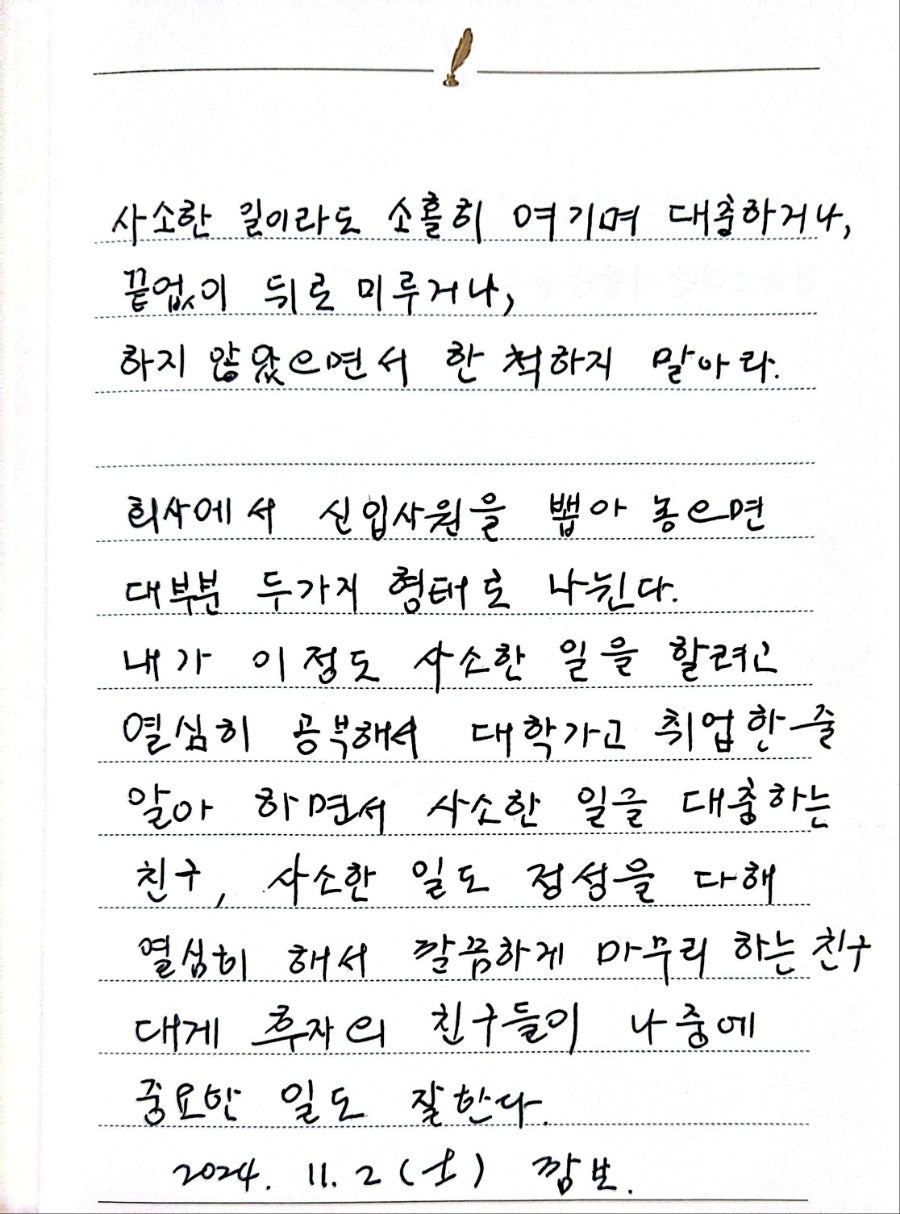 사소한 일이라도 소홀히 여기며 대충하거나,
끝없이 뒤로 미루거나,
하지 않았으면서 한 척하지 말아라.
회사에서 신입사원을 뽑아 놓으면
대부분 두가지 형태로 나뉜다.
내가 이정도 사소한 일을 할려고
열심히 공부해서 대학가고 취업한 줄
알아 하면서 사소한 일을 대충하는
친구, 사소한 일도 정성을 다해
열심히 해서 깔끔하게 마무리 하는 친구
대게 후자의 친구들이 나중에
중요한 일도 잘한다.
2024. 11. 2 (土) 깜보.